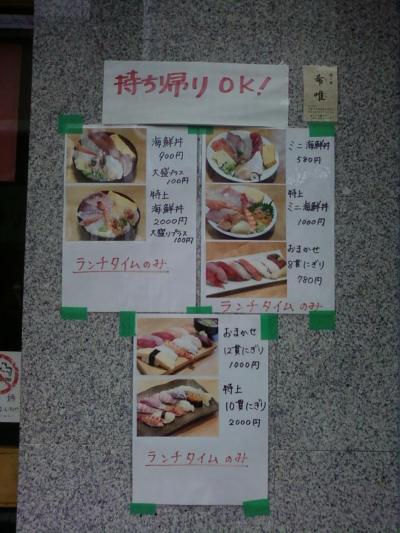 持ち帰りOK!
希唯
海鮮丼
900円
大盛プラス
100円
特上
海鮮丼
2000円
大盛りプラス
100円
ランチタイムのみ
ミニ海鮮丼
580円
特上
ミニ海鮮丼
1000円
おまかせ
8貫にぎり
780円
ランチタイムのみ
おまかせ
12貫にぎり
1000円
特上
10貫にぎり
2000円
ランチタイムのみ